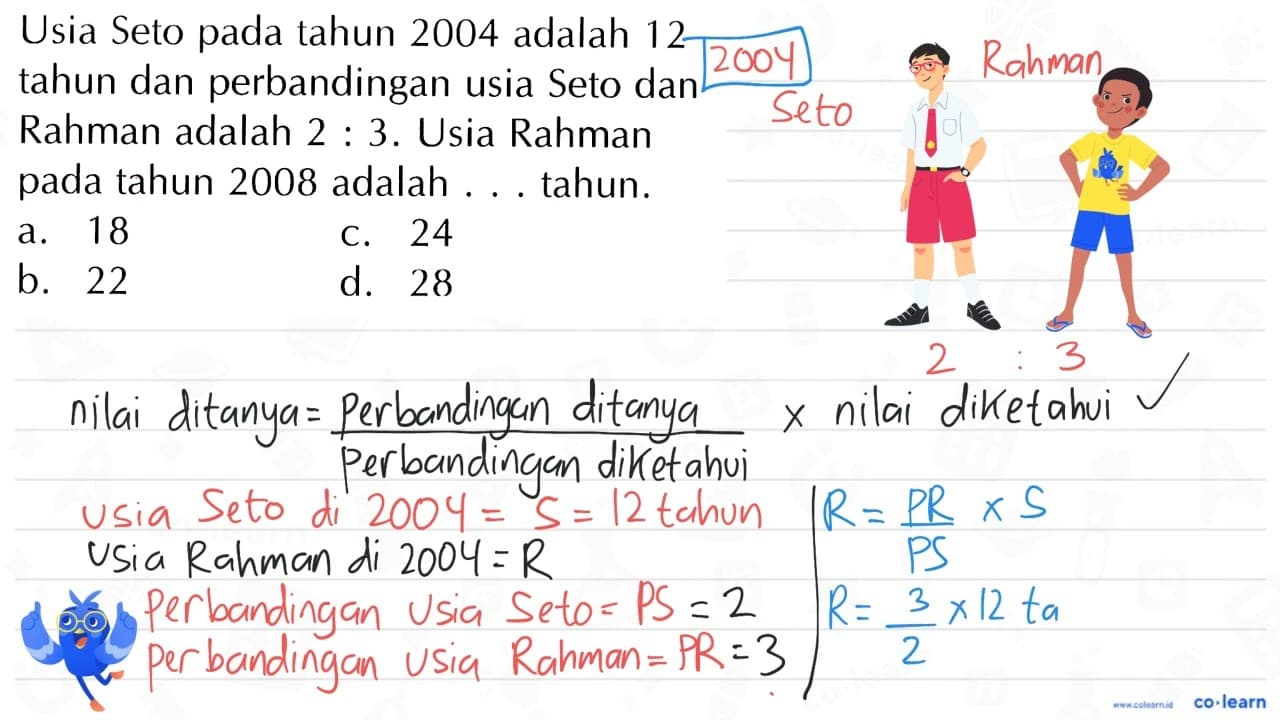 Usia Seto pada tahun 2004 adalah 12
tahun dan perbandingan usia Seto dan
Rahman adalah 2 : 3. Usia Rahman
pada tahun 2008 adalah . . . tahun.
a. 18 c. 24
b. 22 d. 28
2004
Seto
Rahman
2 : 3
nilai ditanya = Perbandingan ditanya x nilai diketahui ✓
Perbandingan diketahui
Usia Seto di 2004 = S = 12 tahun
Usia Rahman di 2004 = R
Perbandingan Usia Seto = PS = 2
Perbandingan Usia Rahman = PR = 3
R = PR x S
PS
R = 3 x 12 ta
2
www.colearn.id co·learn